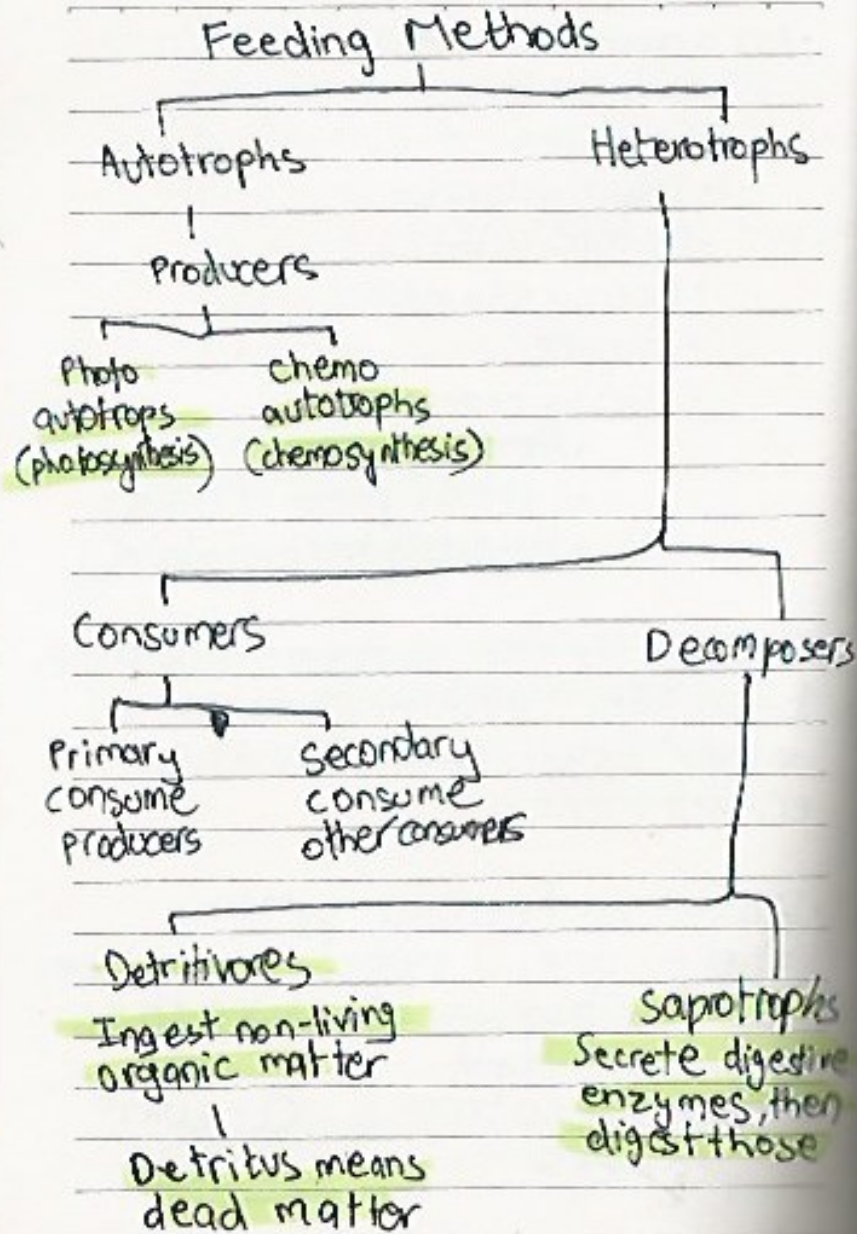 Feeding Methods
Autotrophs
Heterotrophs
Producers
Photo
autotrops
(photosynthesis)
chemo
autotrophs
(chemosynthesis)
Consumers
Decomposers
Primary
consume
producers
secondary
consume
other consumers
Detritivores
Ingest non-living
organic matter
Detritus means
dead matter
saprotrophs
Secrete digestive
enzymes, then
digest those